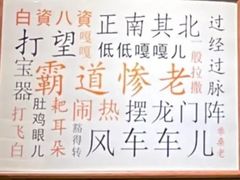 白資八資
正南其北
过经过脉
打望
嘎嘎
低低嘎嘎儿
一般拉撒
宝器
霸道惨老
肚鸡眼儿
耙耳朵
闹热
摆龙门阵
打飞白
风车车儿